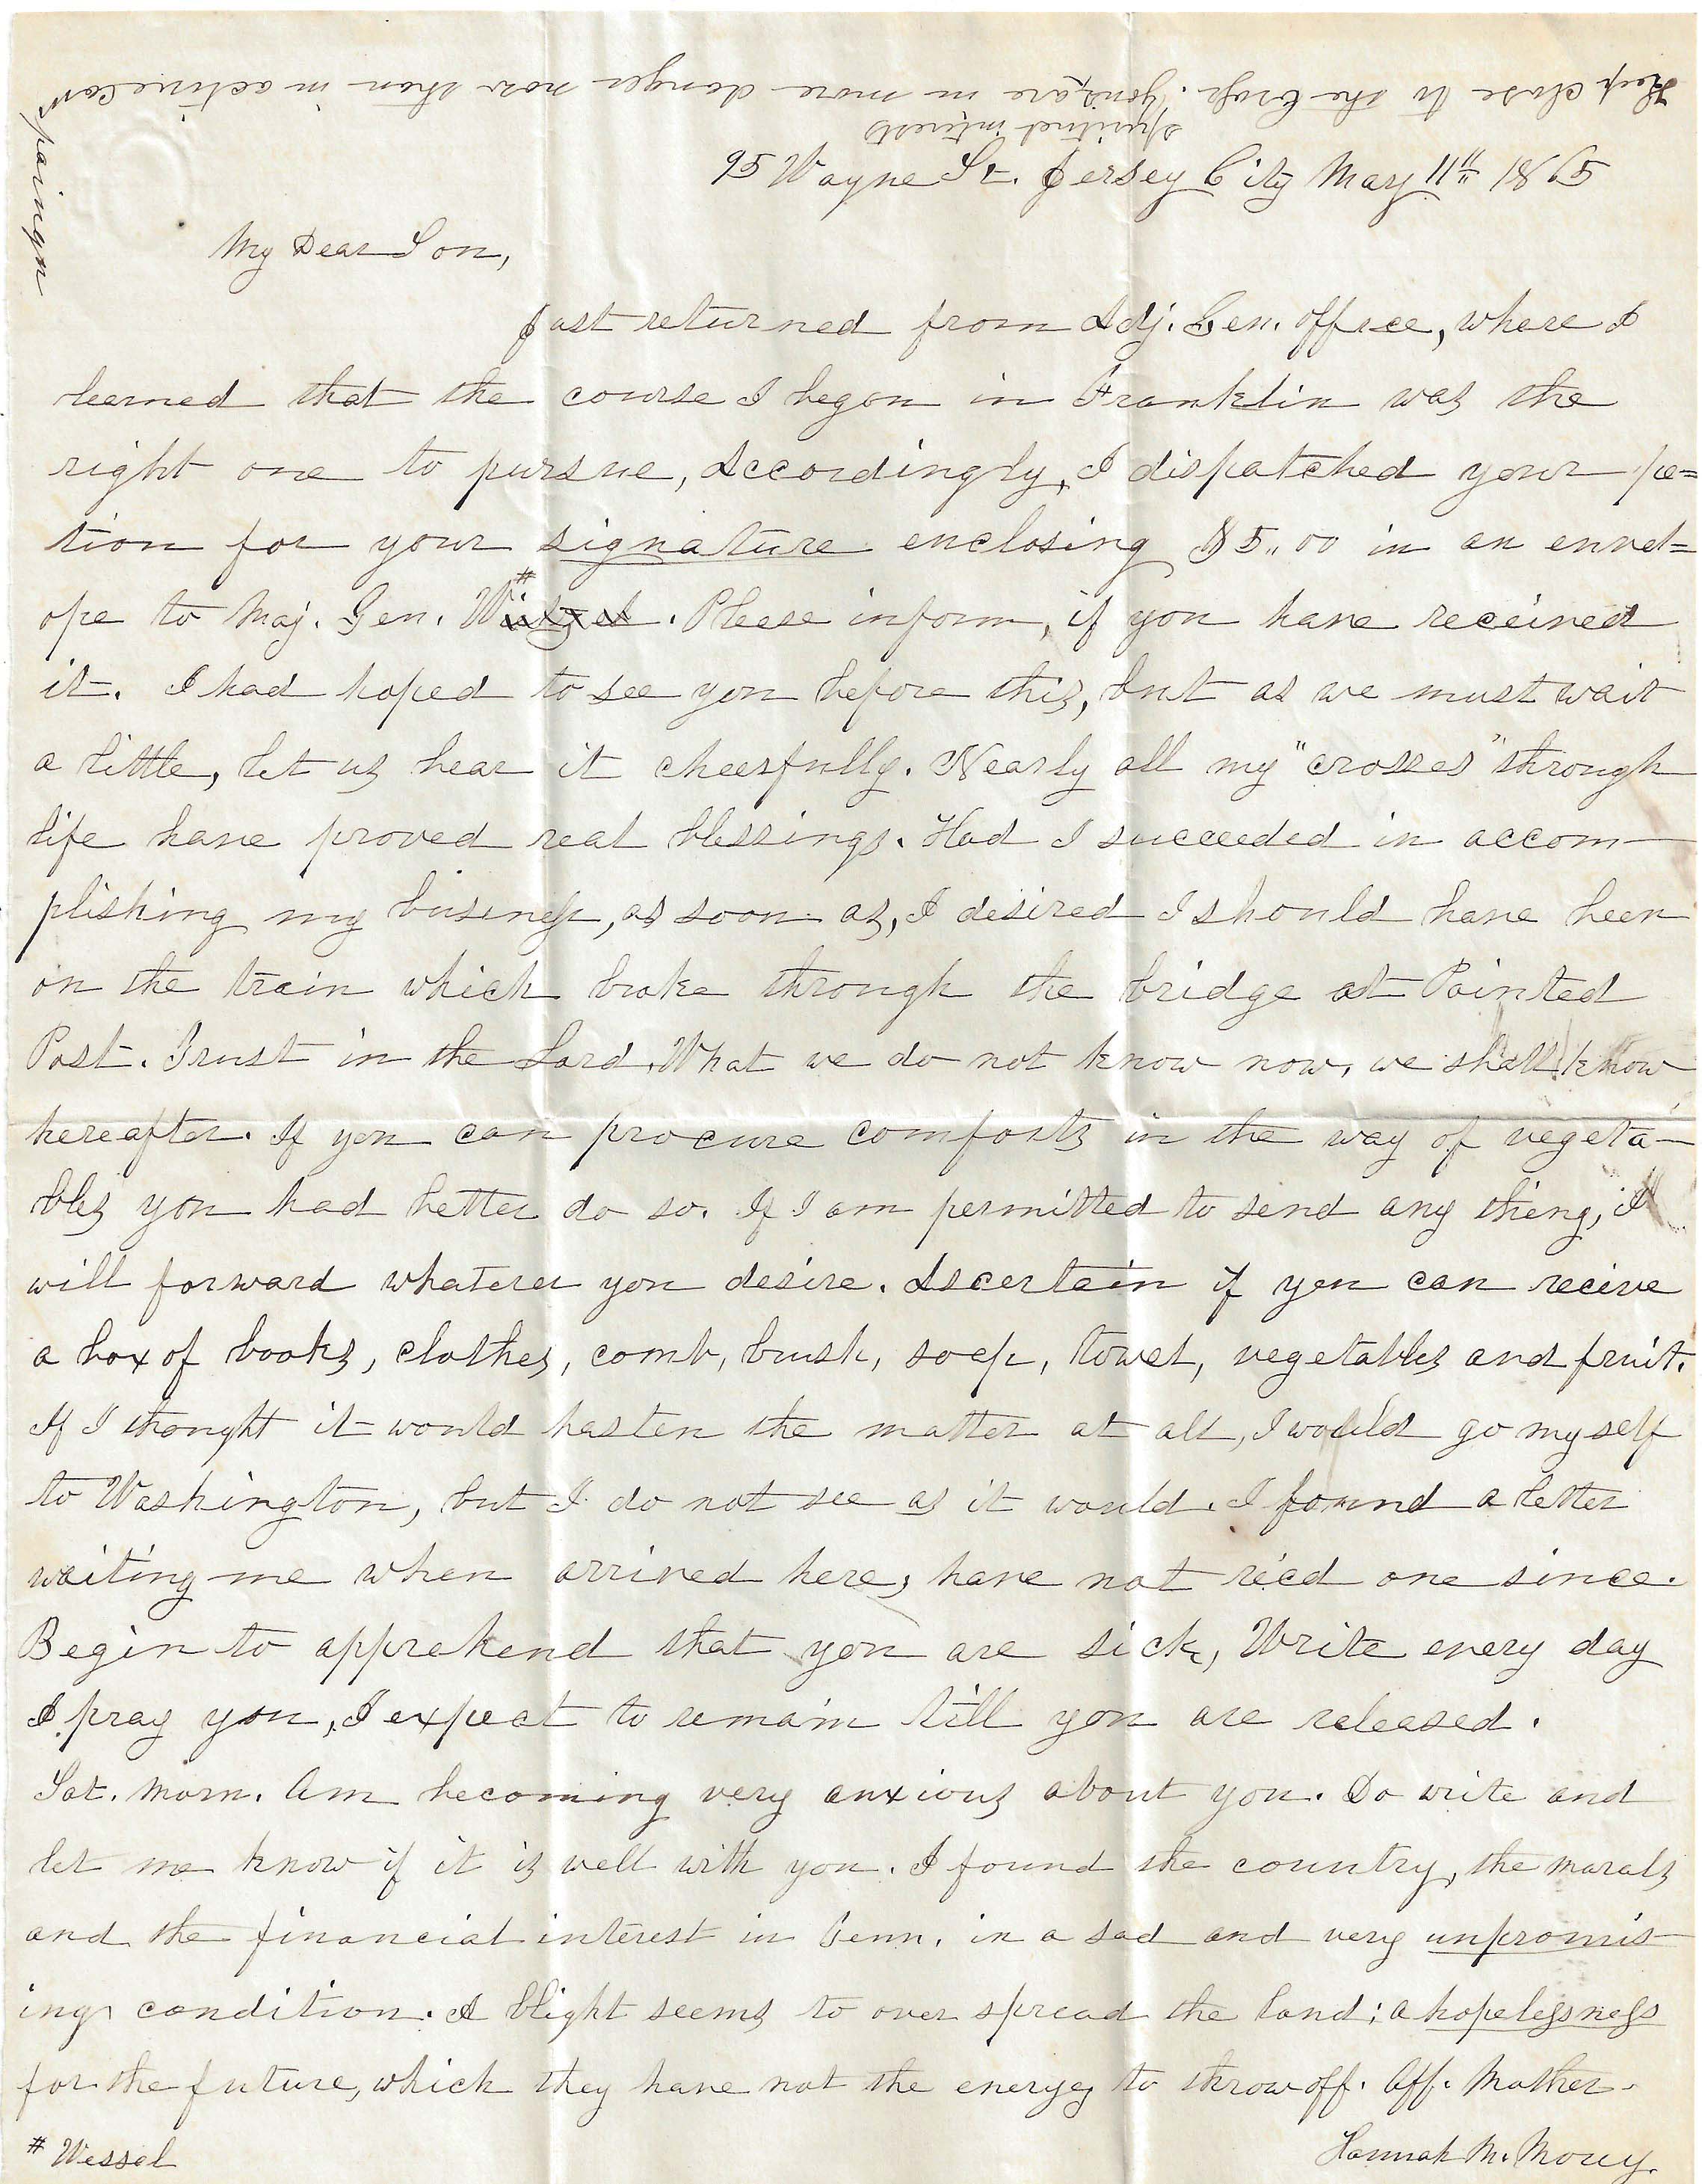 Keep close to the Cross. Your are in more danger now than in active cam
spiritual interests
paingn
95 Wayne St. Jersey City May 11th 1865
My Dear Son,
Just returned from Adj. Gen. office, where I
learned that the course I began in Franklin was the
right one to pursue, Accordingly, I dispatched your pe=
tion for your signature enclosing $5,,00 in an envel=
ope to Maj. Gen. #. Please inform, if you have received
it. I had hoped to see you before this, but as we must wait
a little, let us bear it cheerfully. Nearly all my "crosses" through
life have proved real blessings. Had I succeeded in accom-
plishing my business, as soon as, I desired I should have been
on the train which broke through the bridge at Painted
Post. Trust in the Lord. What we do not know now, we shall know
hereafter. If you can procure comforts in the way of vegeta-
bles you had better do so. If I am permitted to send any thing, I
will forward whatever you desire. Ascertain if you can recive
a box of books, clothes, comb, brush, soap, towel, vegetables and fruit.
If I thought it would hasten the matter at all, I would go myself
to Washington, but I do not see as it would. I found a letter
waiting me when arrived here, have not rec'd one since.
Begin to apprehend that you are sick, Write every day
I pray you, I expect to remain till you are released.
Sat. Morn. Am becoming very anxious about you. Do write and
let me know if it is well with you. I found the country, the morals
and the financial interest in Penn. in a sad and very unpromis-
ing condition. A blight seems to over spread the land; a hopelessness
for the future, which they have not the energy to throw off. Aff. Mother.
# Wessel
Hannah M. Mowry.